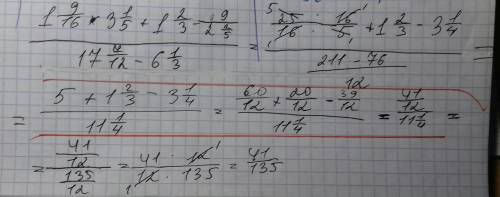 1 9/16 * 3 1/5 + 1 2/3 - 9/(2 4/5) / (17 7/12 - 6 1/3) = (25/16 · 16/5 + 1 2/3 - 3 1/4) / (211 - 76) =
5 1 1 1 12
= (5 + 1 2/3 - 3 1/4) / (11 1/4) = (60/12 + 20/12 - 39/12) / (11 1/4) = (41/12) / (11 1/4) =
= (41/12) / (135/12) = (41 · 12) / (12 · 135) = 41/135
1 1